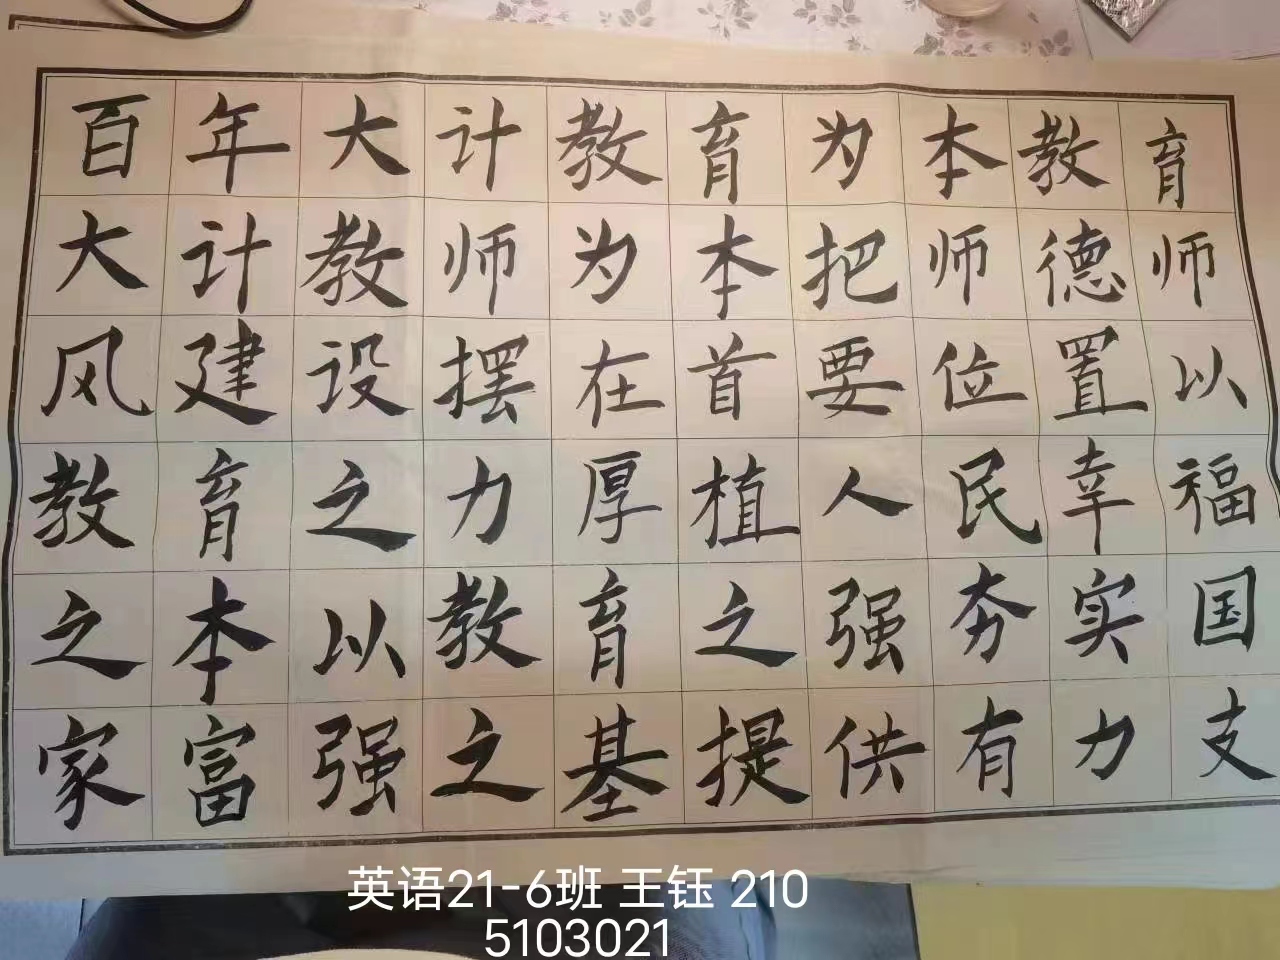 百年大计教育为本教育
大计教师为本把师德师
风建设摆在首要位置以
教育之力厚植人民幸福
之本以教育之强夯实国
家富强之基提供有力支
英语21-6班 王钰 210
5103021